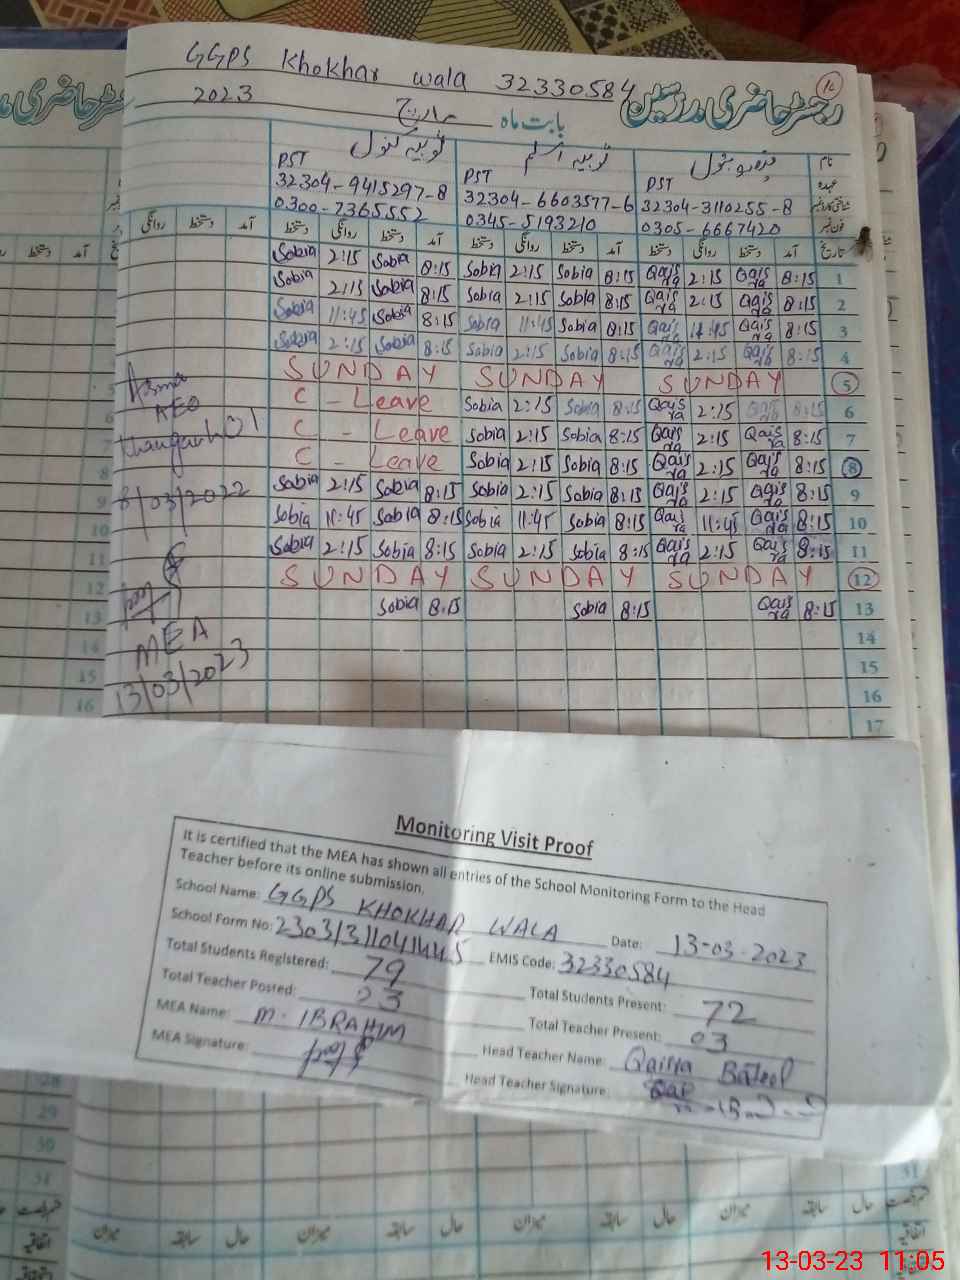 GGPS Khokhar wala 32330584
14
رجسٹر حاضری مدرسین
بابت ماہ مارچ 2023
نام
PST PST PST عہدہ
32304-9415297-8 32304-6603577-6 32304-3110255-8
0300-7365552 0345-5193210 0305-6667420 فون نمبر
روانگی دستخط آمد دستخط روانگی دستخط آمد دستخط روانگی دستخط آمد دستخط روانگی دستخط آمد تاریخ
Sobia 2:15 Sobia 8:15 Sobia 2:15 Sobia 8:15 Qaisra 2:15 Qaisra 8:15 1
Sobia 2:15 Sobia 8:15 Sobia 2:15 Sobia 8:15 Qaisra 2:15 Qaisra 8:15 2
Sobia 11:45 Sobia 8:15 Sobia 11:45 Sobia 8:15 Qaisra 11:45 Qaisra 8:15 3
Sobia 2:15 Sobia 8:15 Sobia 2:15 Sobia 8:15 Qaisra 2:15 Qaisra 8:15 4
SUNDAY SUNDAY SUNDAY 5
C - Leave Sobia 2:15 Sobia 8:15 Qaisra 2:15 Qaisra 8:15 6
C - Leave Sobia 2:15 Sobia 8:15 Qaisra 2:15 Qaisra 8:15 7
C - Leave Sobia 2:15 Sobia 8:15 Qaisra 2:15 Qaisra 8:15 8
Sobia 2:15 Sobia 8:15 Sobia 2:15 Sobia 8:15 Qaisra 2:15 Qaisra 8:15 9
Sobia 11:45 Sobia 8:15 Sobia 11:45 Sobia 8:15 Qaisra 11:45 Qaisra 8:15 10
Sobia 2:15 Sobia 8:15 Sobia 2:15 Sobia 8:15 Qaisra 2:15 Qaisra 8:15 11
SUNDAY SUNDAY SUNDAY 12
Sobia 8:15 Sobia 8:15 Qaisra 8:15 13
14
15
16
17
AEO
8/03/2022
MEA
13/03/2023
Monitoring Visit Proof
It is certified that the MEA has shown all entries of the School Monitoring Form to the Head
Teacher before its online submission.
School Name: GGPS KHOKHAR WALA Date: 13-03-2023
School Form No: EMIS Code: 32330584
Total Students Registered: 79 Total Students Present: 72
Total Teacher Posted: 03 Total Teacher Present: 03
MEA Name: M. IBRAHIM Head Teacher Name: Qaisra Batool
MEA Signature: Head Teacher Signature:
28
29
30
31
میزان سابقہ حال میزان سابقہ حال میزان سابقہ حال
اتفاقیہ
13-03-23 11:05